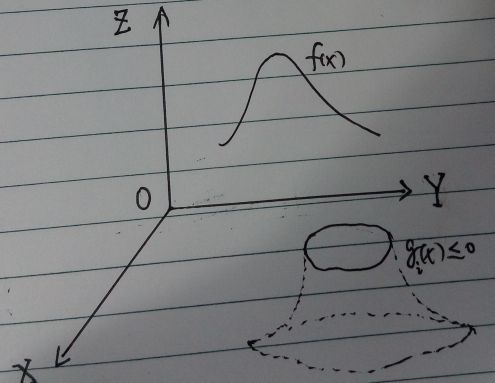 Z
f(x)
O
Y
gᵢ(x) ≤ 0
X